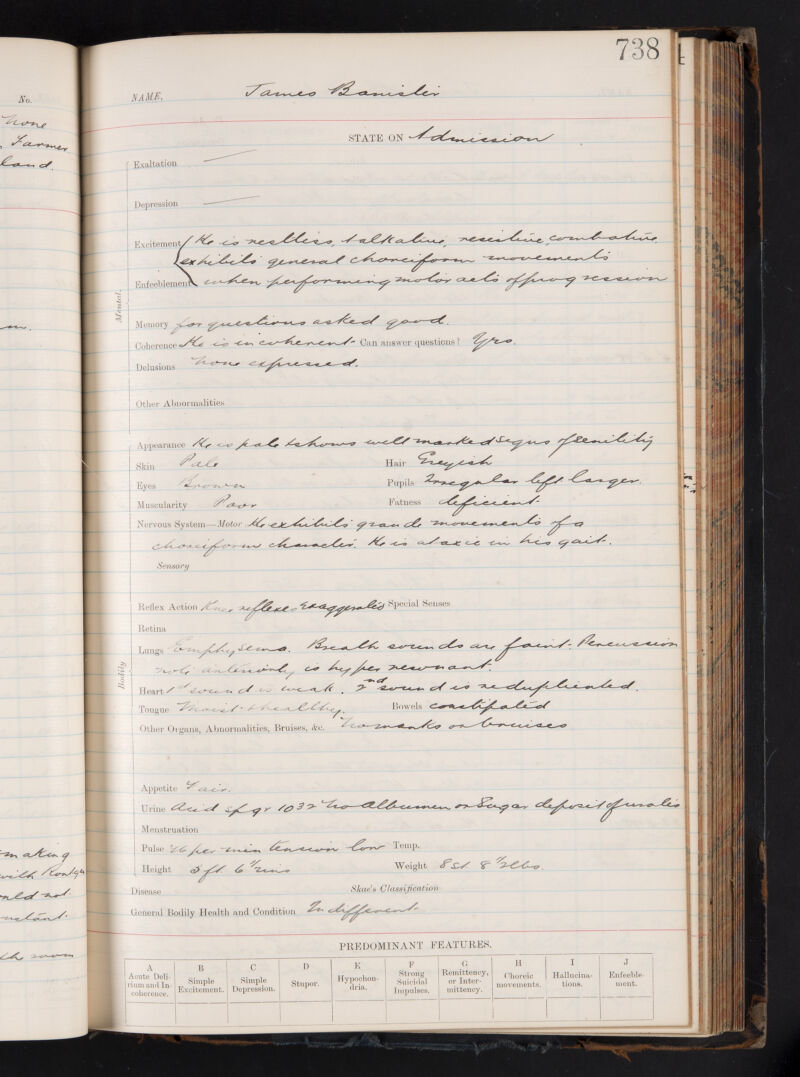 738
No.
None
Farmer
land.
NAME, James Banister
STATE ON Admission
Exaltation —
Depression —
Excitement He is restless, talkative, resistive, combative
exhibits general choreiform movements
Enfeeblement when performing motor acts of progression
Mental.
Memory for questions asked good.
Coherence He is incoherent Can answer questions? Yes.
Delusions None expressed.
Other Abnormalities
Appearance He is pale & shows well marked signs of senility
Skin Pale Hair Greyish
Eyes Brown Pupils Irregular left larger.
Muscularity Poor Fatness deficient
Nervous System—Motor He exhibits grande movements of a
choreiform character. He is ataxic in his gait.
Sensory
Reflex Action Knee reflexes exaggerated Special Senses
Retina
Lungs Emphysema. Breath sounds are faint. Percussion
note anteriorly is hyper resonant.
Bodily
Heart 1st sound is weak. 2nd sound is reduplicated.
Tongue Moist & healthy. Bowels constipated
Other Organs, Abnormalities, Bruises, &c. No marks or bruises
Appetite Fair.
Urine Acid sp gr 1032 No Albumen or Sugar deposit of urates
Menstruation
Pulse per min tension low Temp.
Height 5 ft 6 1/2 ins Weight 8 St 8 1/2 lbs.
Disease Skae's Classification
General Bodily Health and Condition Indifferent
making
with
not
room
PREDOMINANT FEATURES.
A B C D E F G H I J
Acute Delirium and Incoherence. Simple Excitement. Simple Depression. Stupor. Hypochondria. Strong Suicidal Impulses. Remittency, or Intermittency. Choreic movements. Hallucinations. Enfeeblement.